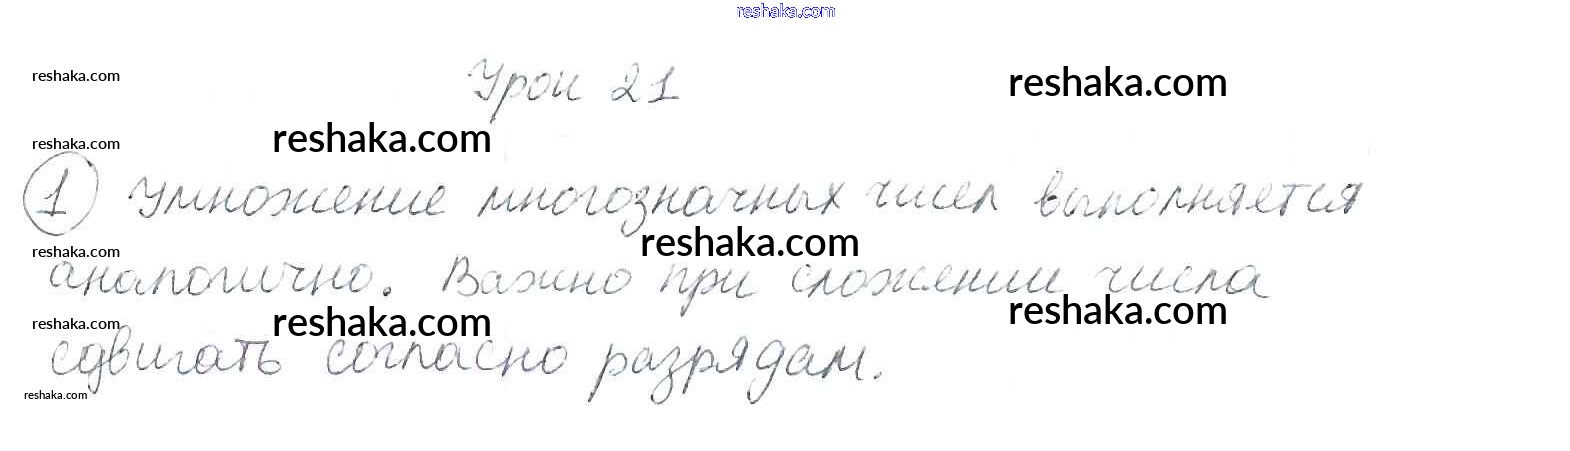 reshaka.com
Урок 21
reshaka.com
reshaka.com
reshaka.com
reshaka.com
1 Умножение многозначных чисел выполняется
reshaka.com
reshaka.com
аналогично. Важно при сложении числа
reshaka.com
reshaka.com
reshaka.com
сдвигать согласно разрядам.
reshaka.com